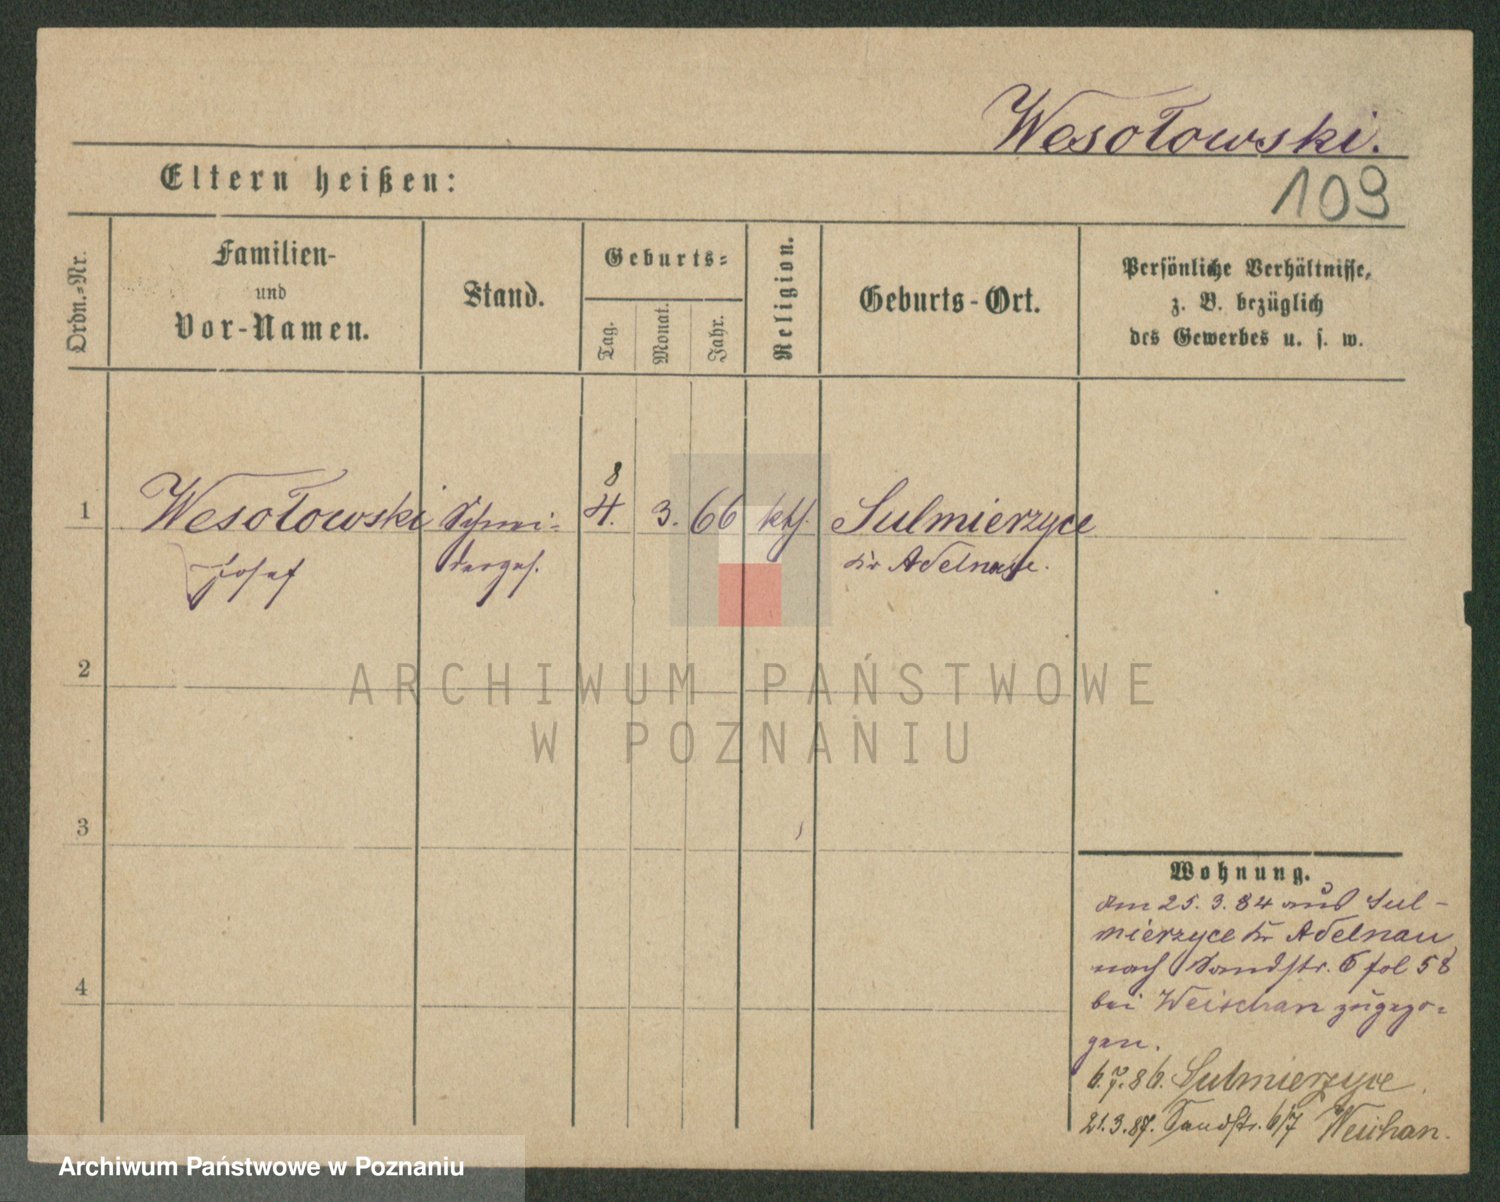 Wesołowski.
109
Eltern heißen:
Ordn.-Nr.
Familien-
und
Vor-Namen.
Stand.
Geburts-
Tag.
Monat.
Jahr.
Religion.
Geburts-Ort.
Persönliche Verhältnisse,
z. B. bezüglich
des Gewerbes u. s. w.
8
1 Wesołowski Schnei- 4. 3. 66 kth. Sulmierzyce
Josef dergs. Kr Adelnau.
2
ARCHIWUM PAŃSTWOWE
W POZNANIU
3
Wohnung.
Am 25.3.84 aus Sul-
mierzyce Kr Adelnau
nach Sandstr. 6 fol 58
bei Weischan zugezo-
gen.
4
6.7.86. Sulmierzyce.
21.3.87. Sandstr. 6/7 Weichan.
Archiwum Państwowe w Poznaniu